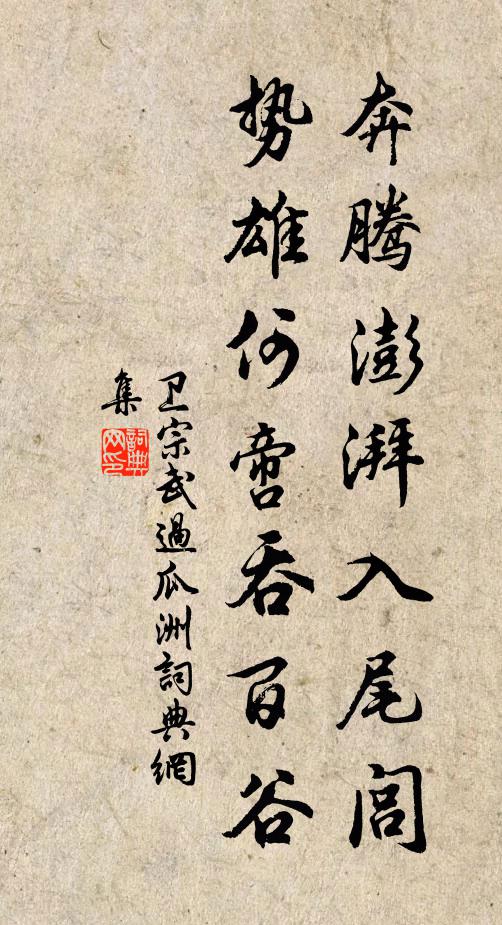 奔腾澎湃入尾闾
势雄何啻吞百谷
卫宗武過瓜洲詞典網
集
詞典
网印